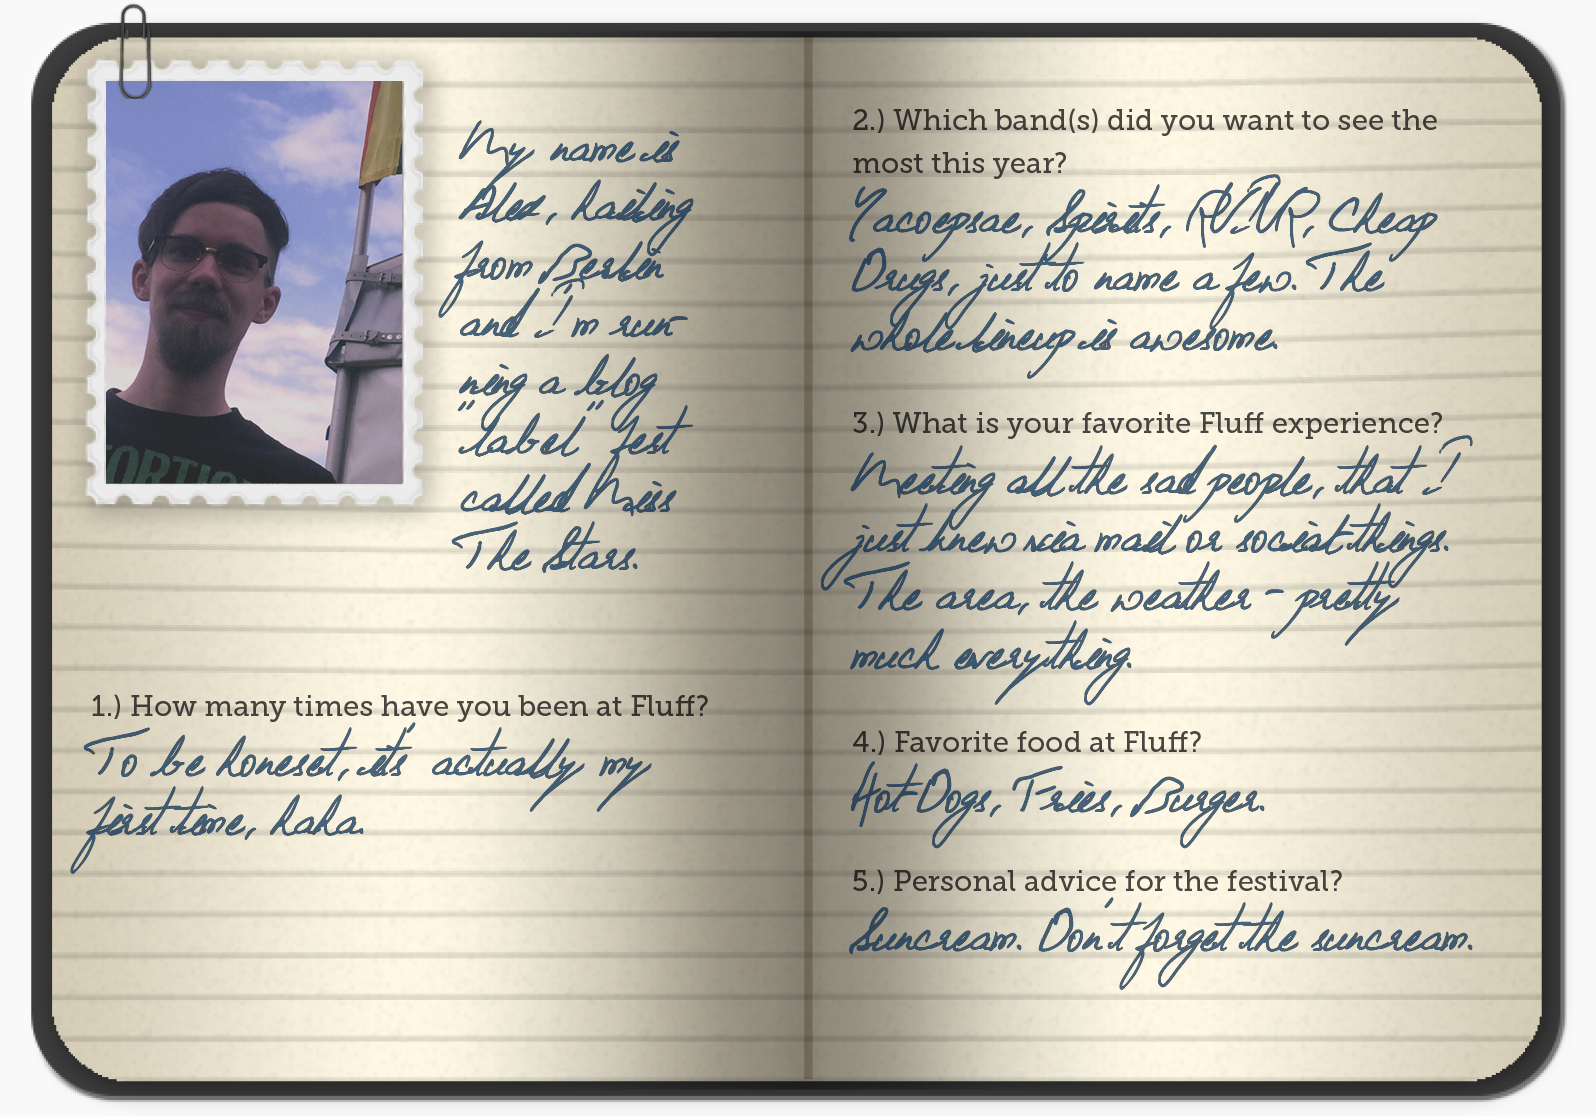 My name is
Alex, hailing
from Berlin
and I'm run-
ning a blog
"label" fest
called Miss
The Stars.
ORTIC
1.) How many times have you been at Fluff?
To be honeset, it's actually my
first time, haha.
2.) Which band(s) did you want to see the
most this year?
Yacoepsae, Spirits, RVIVR, Cheap
Drugs, just to name a few. The
whole lineup is awesome.
3.) What is your favorite Fluff experience?
Meeting all the sad people, that I
just knew via mail or social things.
The area, the weather - pretty
much everything.
4.) Favorite food at Fluff?
Hot Dogs, Fries, Burger.
5.) Personal advice for the festival?
Suncream. Don't forget the suncream.